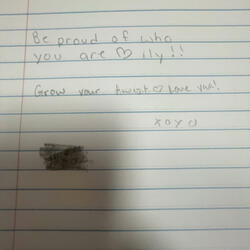 Be proud of who
you are ♡ ily!!
Grow your ♡ Love you!
xoxo